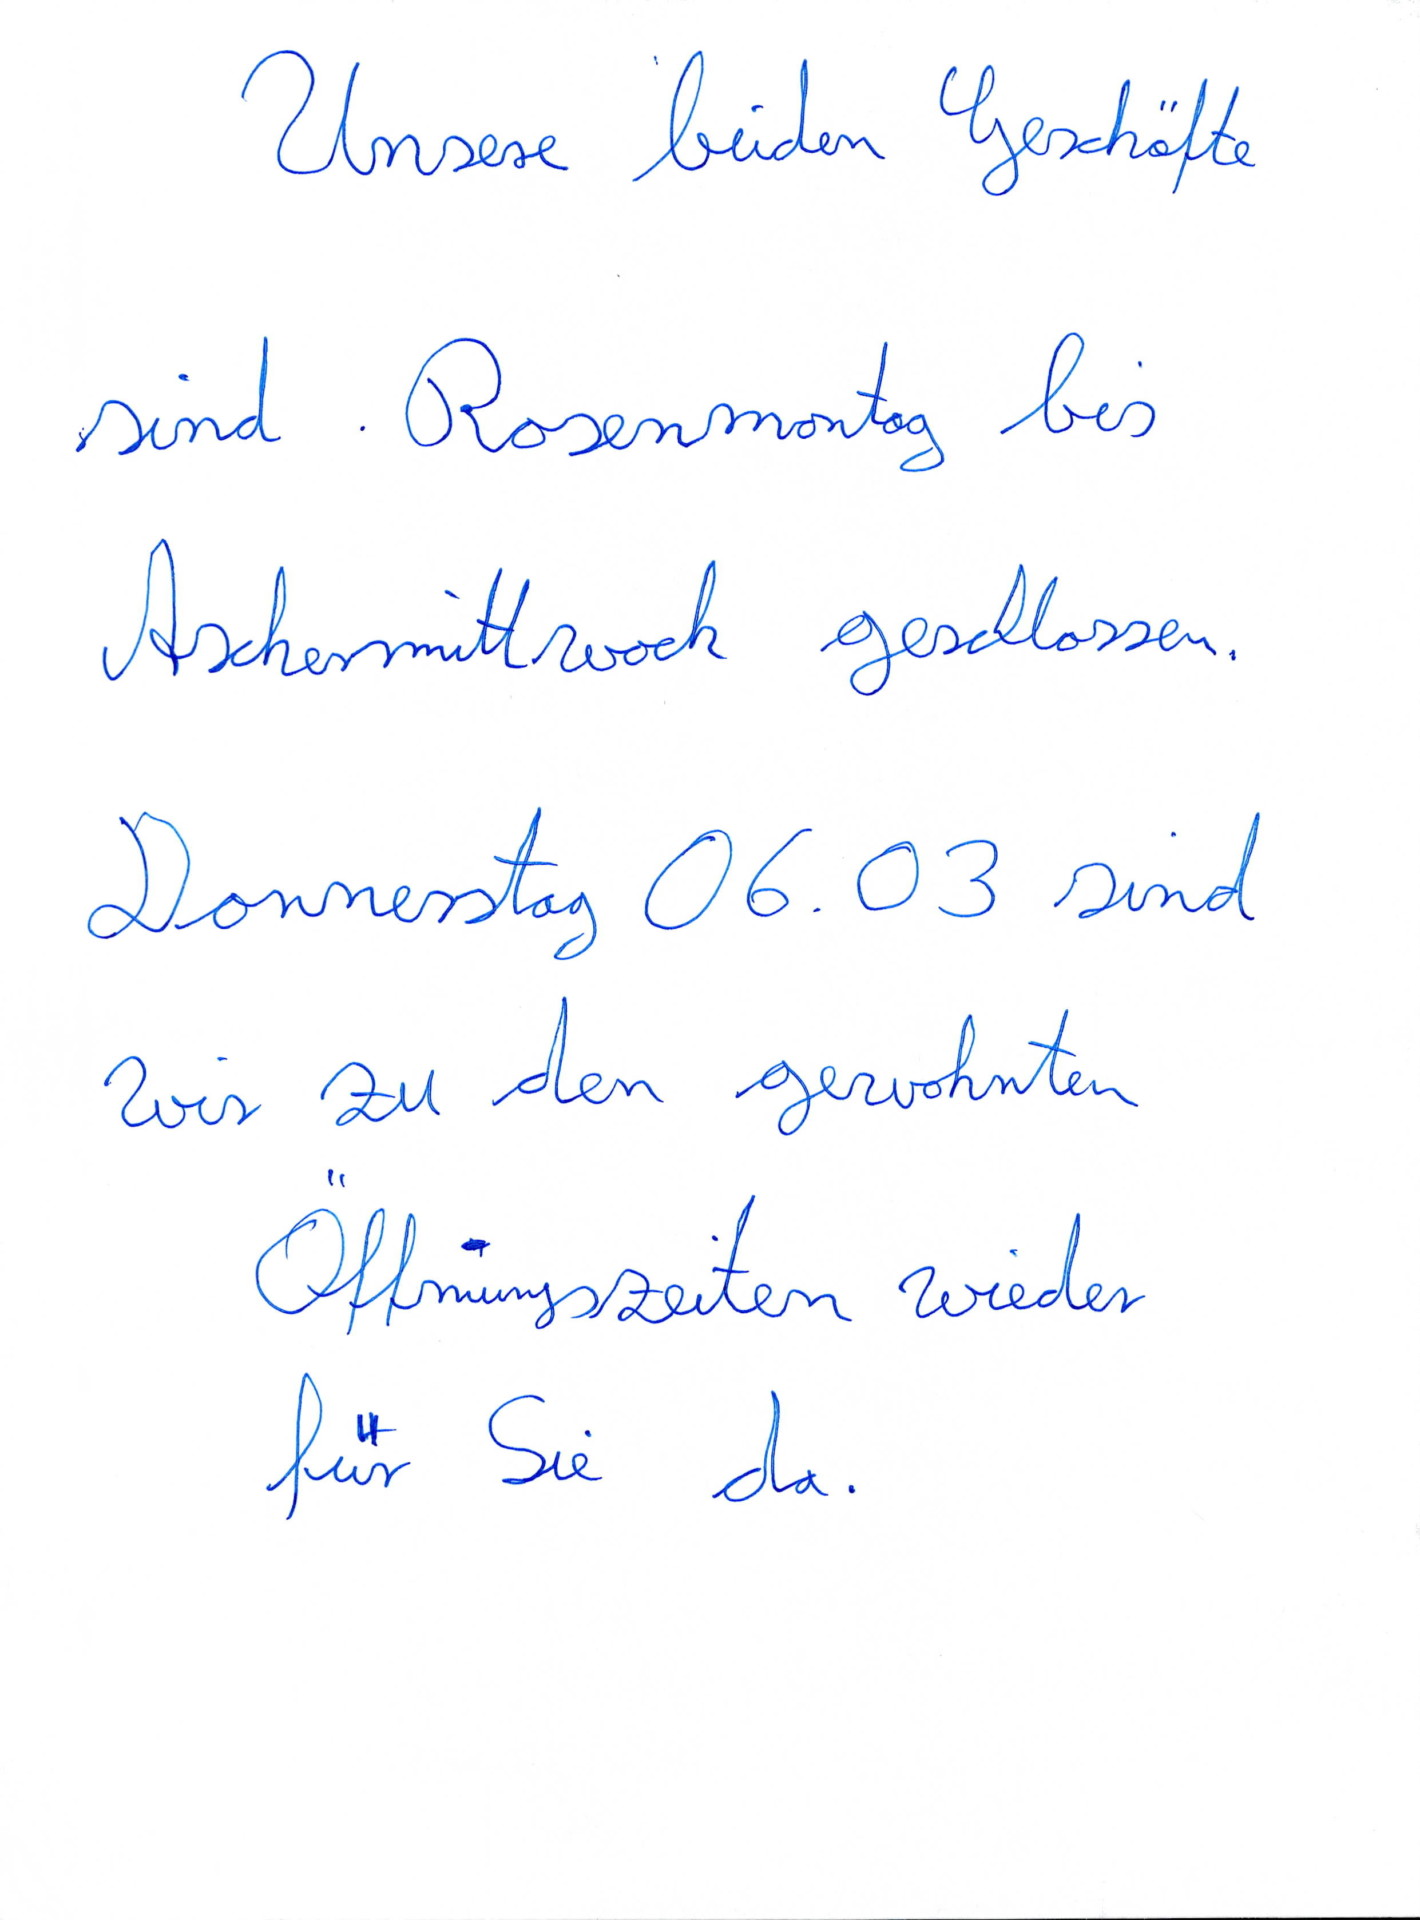 Unsere beiden Geschäfte
sind Rosenmontag bis
Aschermittwoch geschlossen.
Donnerstag 06.03 sind
wir zu den gewohnten
Öffnungszeiten wieder
für Sie da.